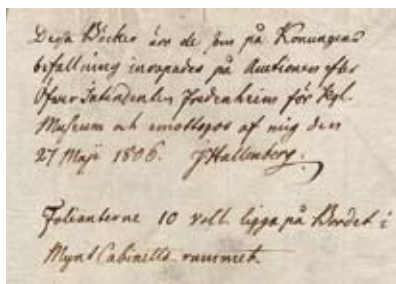 Dessa Böcker äro de som på Konungens
befallning inropades på Auctionen efter
Öfver Intendenten Fredenheim för Kgl.
Museum och emottogos af mig den
27 Maji 1806. JHallenberg.
Folianterne 10 voll. ligga på Bordet i
Mynt Cabinetts rummet.